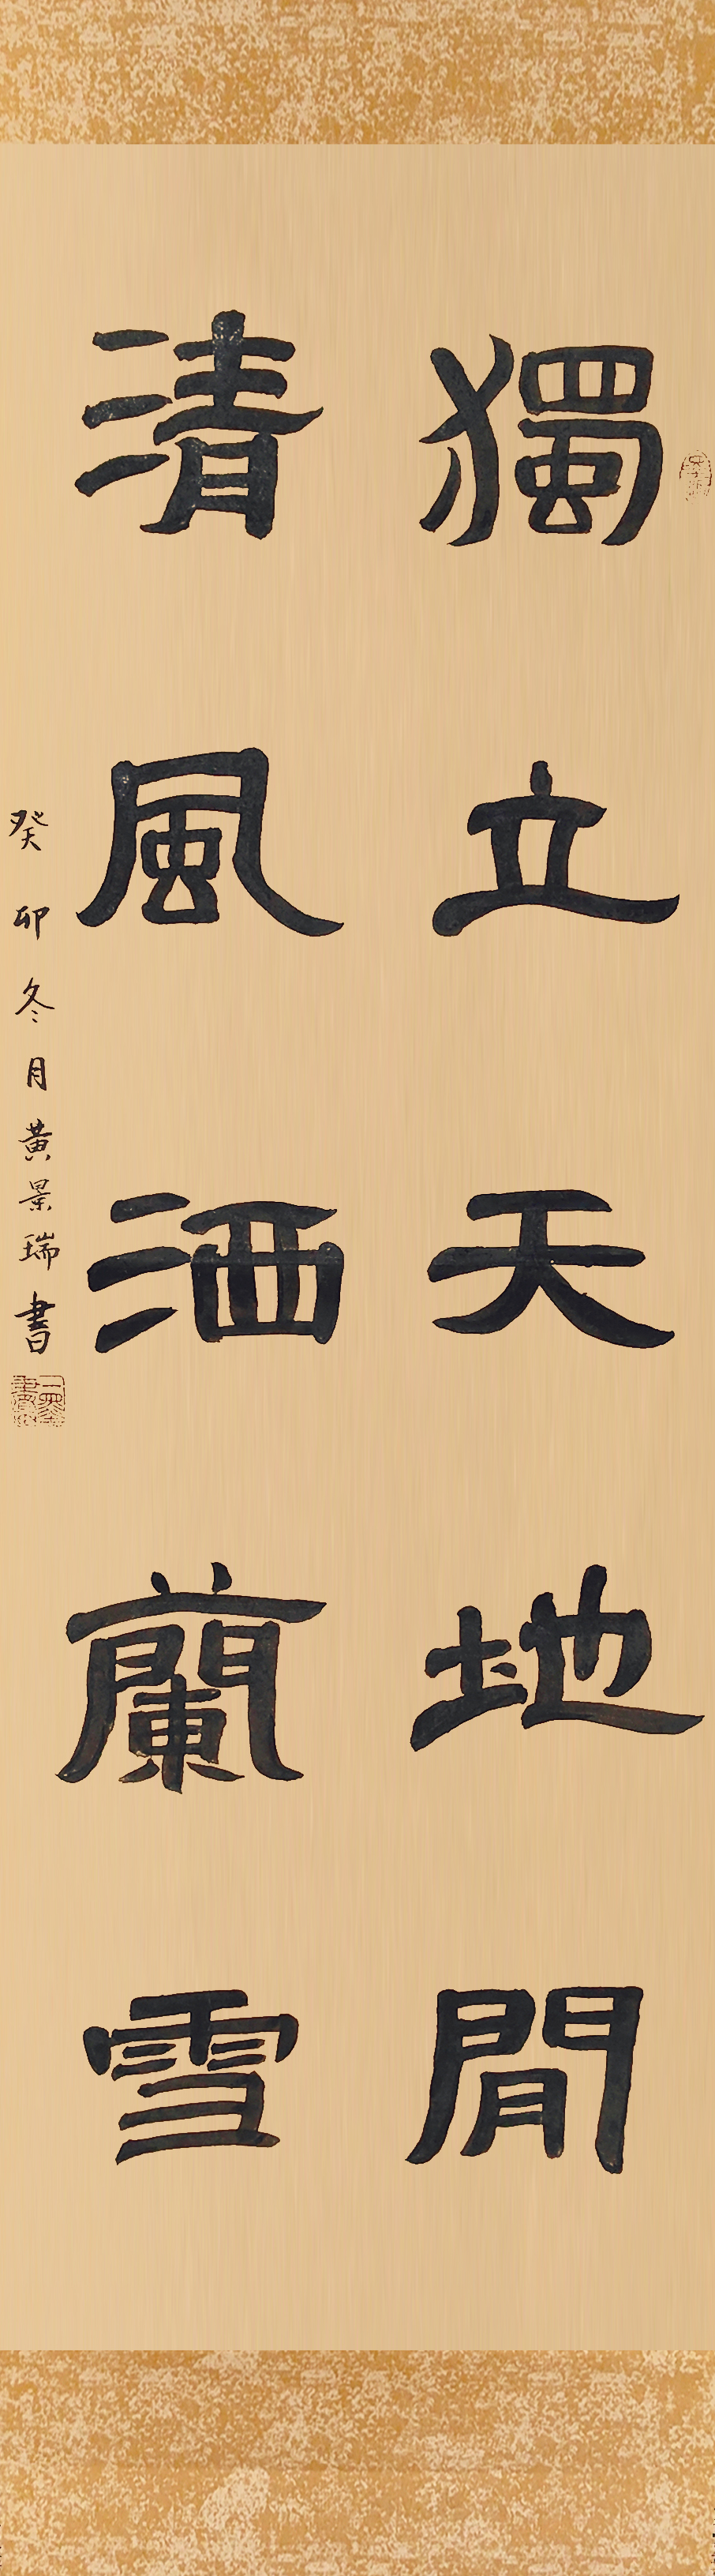 獨立天地閒
清風洒蘭雪
癸卯冬月黃景瑞書